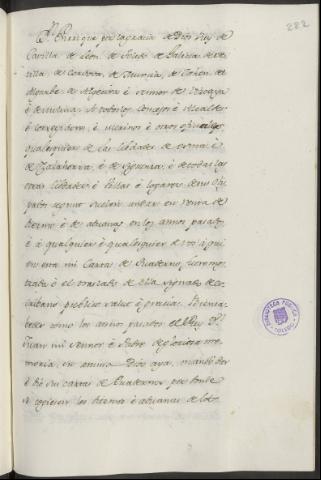 222
Dn. Enrrique por la gracia de Dios Rey de
Castilla de Leon, de Toledo de Galicia de Se-
villa, de Cordova, de Murcia, de Jahen, del
Algarbe de Algecira è Señor de Vizcaya
è de Molina. A todos los Concejos è Alcaldes
è Corregidores, è Merinos è otros oficiales
qualesquier de las Cibdades de Osma è
de Calahorra, è de Siguenza, è de todas las
otras Cibdades è Villas è logares de sus Obis-
pados segunt suelen andar en renta de
diezmo è de aduanas en los annos pasados
è à qualquier è qualesquier de vos à qui-
en esta mi Carta de Quaderno fuere mos-
trada è el traslado de ella signado de es-
cribano publico salut è gracia. Sepa-
des como los annos pasados el Rey Dn.
Juan mi Sennor è Padre de gloriosa me-
moria, cu anima Dios aya, mandó dar
è dió sus cartas de Quadernos por donde
se cogiesen los diezmos è aduanas de los
BIBLIOTECA PUBLICA
TOLEDO